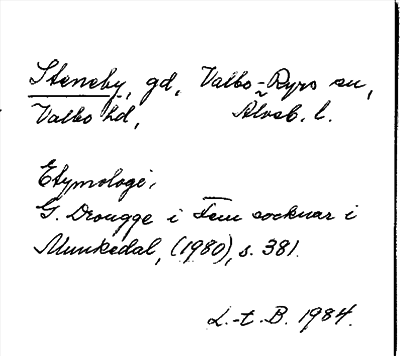 Steneby, gd, Valbo-Ryrs sn,
Valbo hd, Älvsb. l.
Etymologi,
G. Drougge i Fem socknar i
Munkedal, (1980), s. 381.
L.-t. B. 1984.